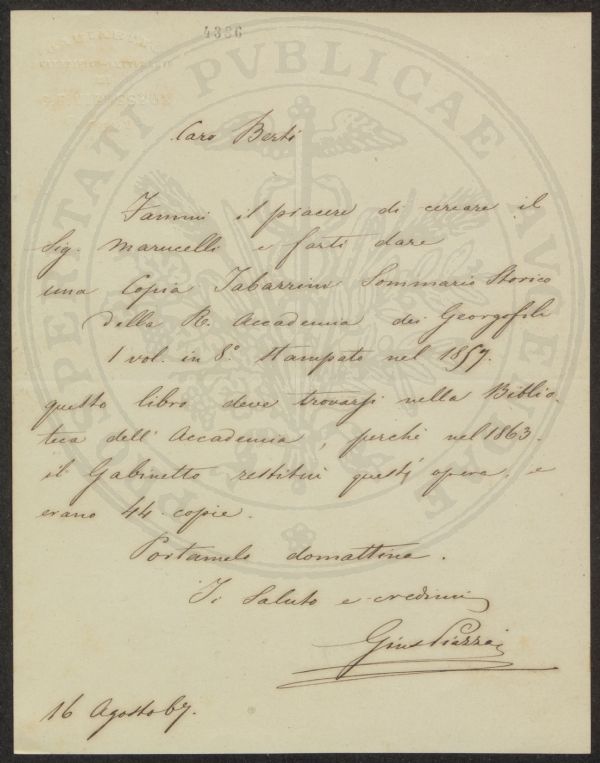 4386
PROSPERITATI PVBLICAE AVGENDAE
Caro Berti
Fammi il piacere di cercare il
Sig. Marucelli e farti dare
una Copia Tabarrini Sommario Storico
della R. Accademia dei Georgofili
1 vol. in 8.º stampato nel 1857.
questo libro deve trovarsi nella Biblio-
teca dell'Accademia, perchè nel 1863.
il Gabinetto restituì quest'opera, e
erano 44 copie.
Portamelo domattina.
Ti saluto e credimi
16 Agosto 67.